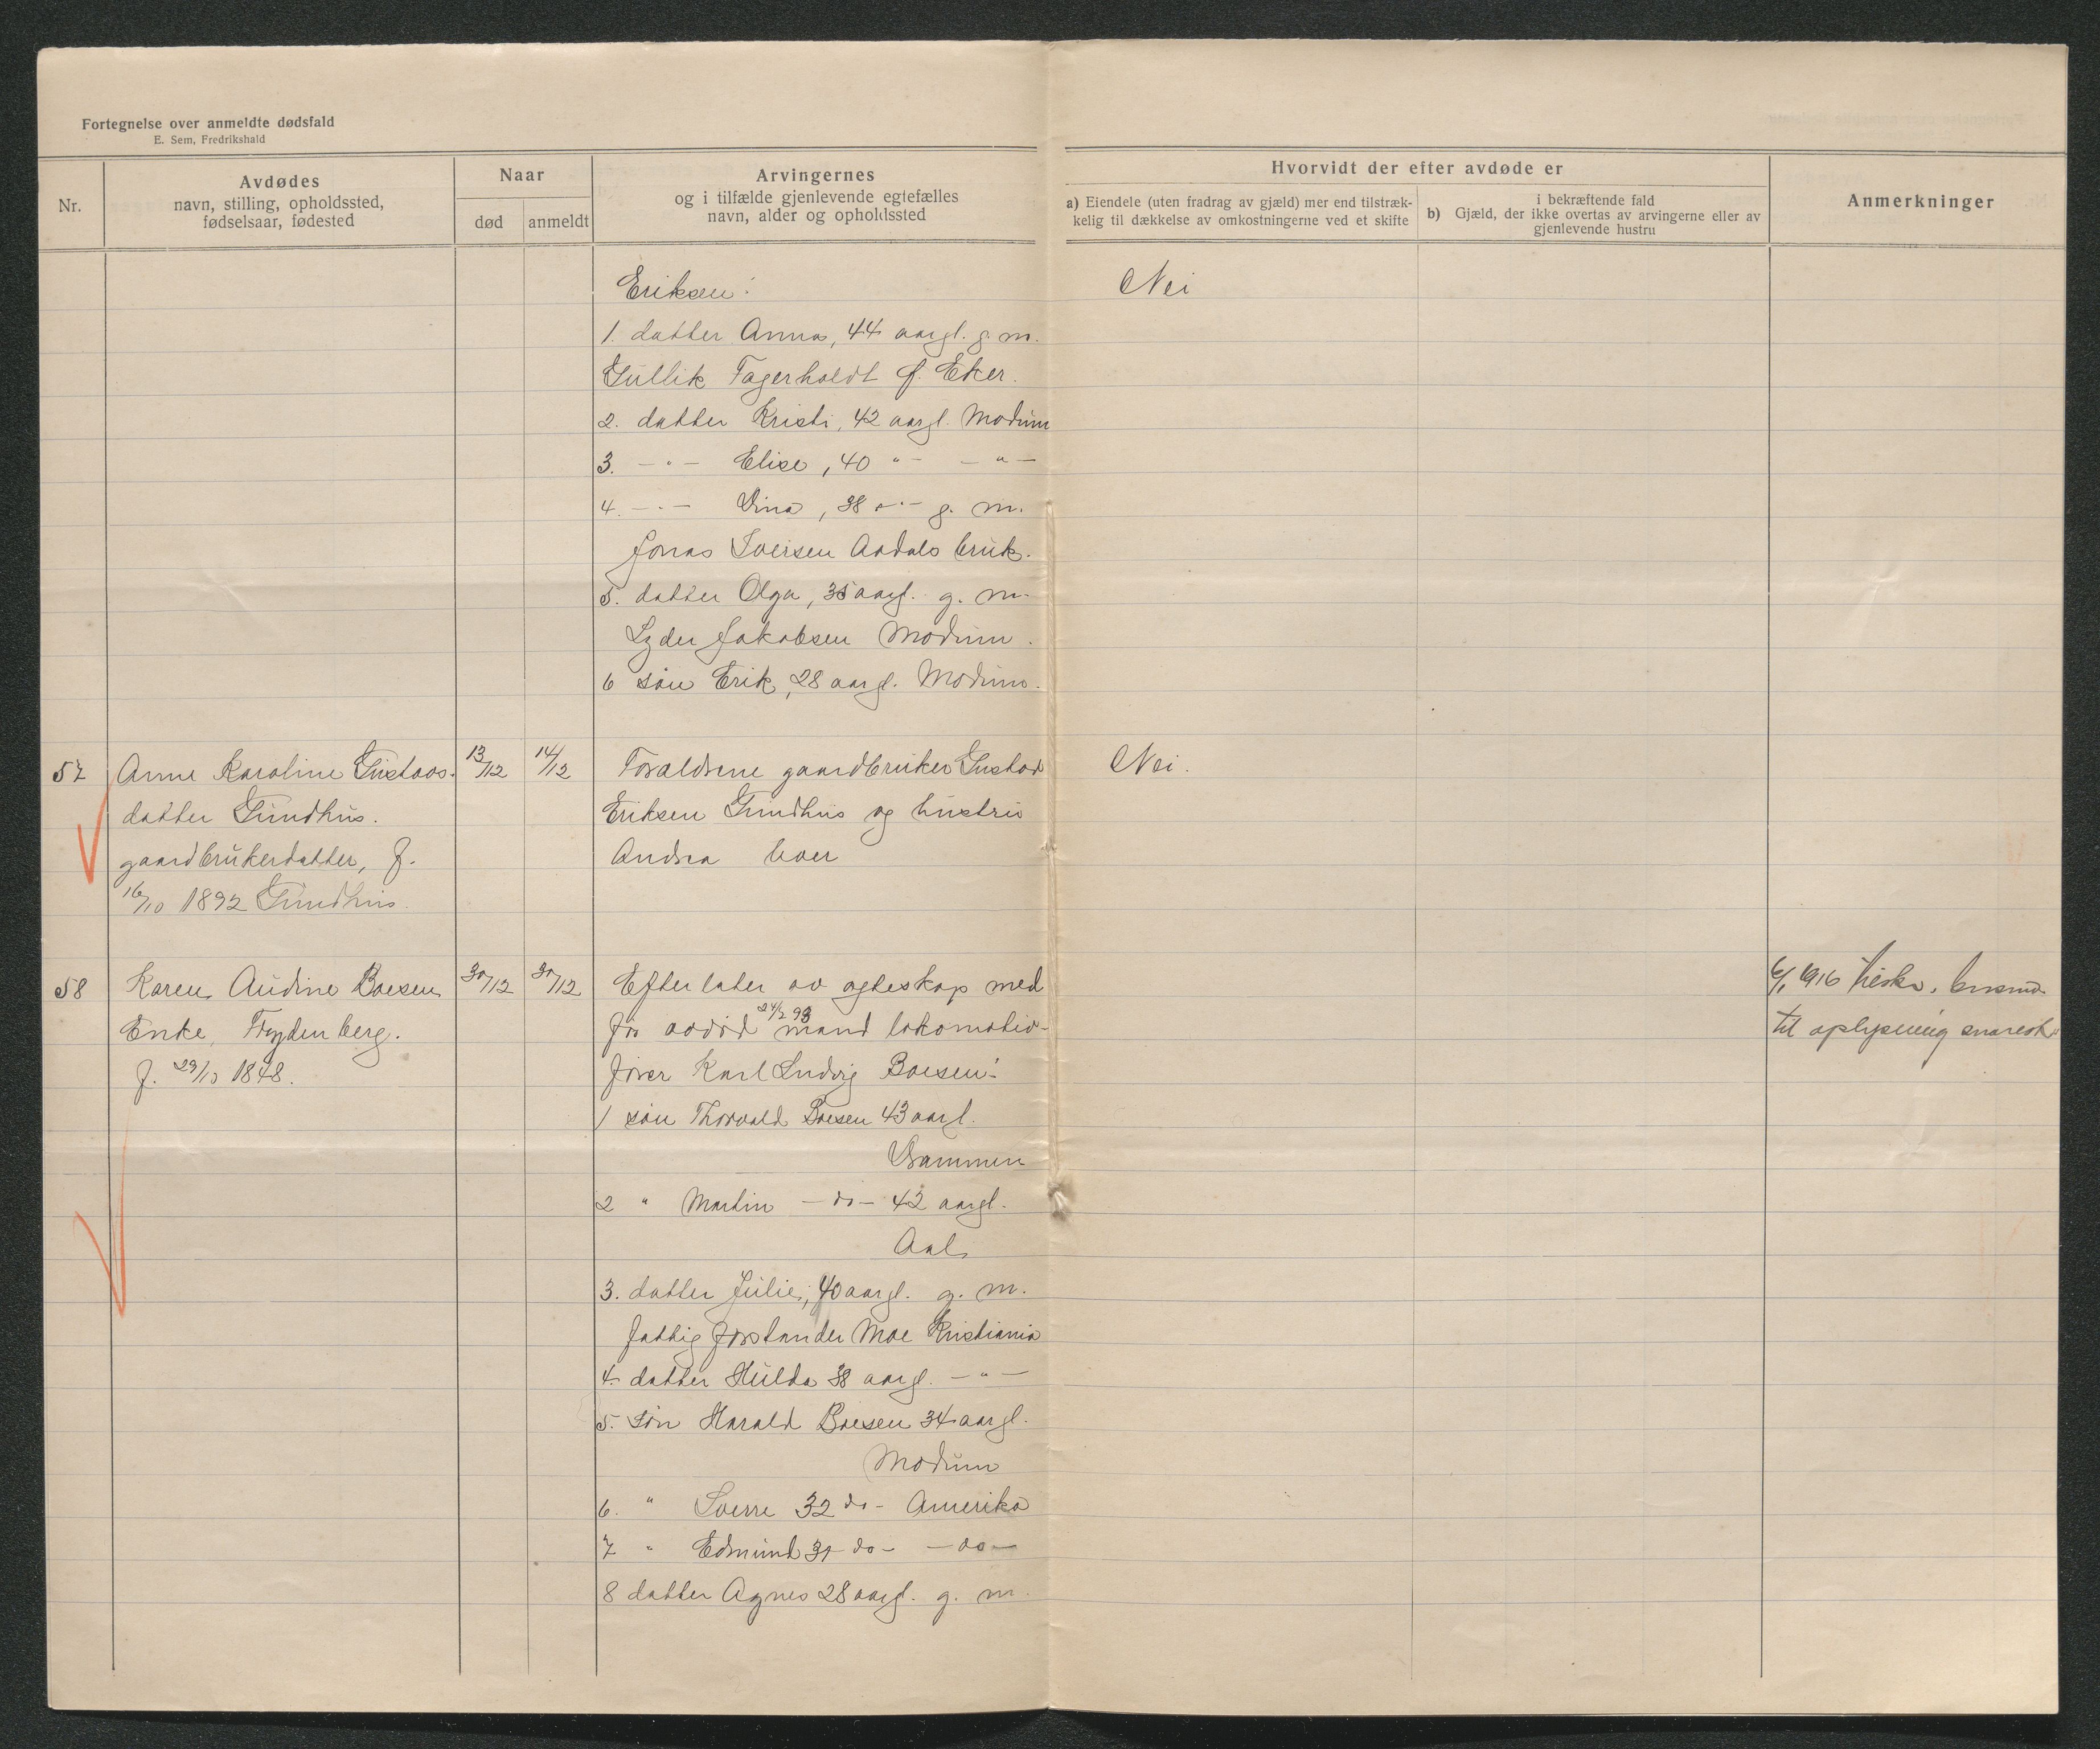 Fortegnelse over anmeldte dødsfald
E. Sem, Fredrikshald
Nr.
Avdødes
navn, stilling, opholdssted,
fødselsaar, fødested
Naar
død
anmeldt
Arvingernes
og i tilfælde gjenlevende egtefælles
navn, alder og opholdssted
Hvorvidt der efter avdøde er
a) Eiendele (uten fradrag av gjæld) mer end tilstræk-
kelig til dækkelse av omkostningerne ved et skifte
i bekræftende fald
b) Gjæld, der ikke overtas av arvingerne eller av
gjenlevende hustru
Anmerkninger
Eriksen:
Nei
1. datter Anna, 44 aargl. g. m.
Gullik Fagerholdt Ø. Eker.
2. datter Kristi, 42 aargl. Modum
3. -"- Elise, 40 "- -"-
4. -"- Dina, 38 -"- g. m.
Jonas Iversen Aadals bruk.
5. datter Olga, 35 aargl. g. m.
Lyder Jakobsen Modum.
6 søn Erik, 28 aargl. Modum.
57
Anne Karoline Gustavs-
datter Gundhus.
gaardbrukerdatter, f.
16/10 1892 Gundhus.
13/12
14/12
Forældrene gaardbruker Gustav
Eriksen Gundhus og hustru
Andrea lever
Nei.
58
Karen Audine Boesen
Enke, Frydenberg.
f. 29/10 1848.
30/12
30/12
Efterlater av egteskap med
før avdød 24/2 93 mand lokomotiv-
fører Karl Ludvig Boesen:
1 søn Thorvald Boesen 43 aargl.
Drammen
2 " Martin -do- 42 aargl.
Aal
3. datter Julie, 40 aargl. g. m.
fattigforstander Moe Kristiania
4. datter Hulda 38 aargl. -"-
5. søn Harald Boesen 34 aargl.
Modum
6. " Sverre 32 do - Amerika
7 " Edmund 30 -do- -do-
8 datter Agnes 28 aargl. g. m.
6/1 1916
til oplysning snarest